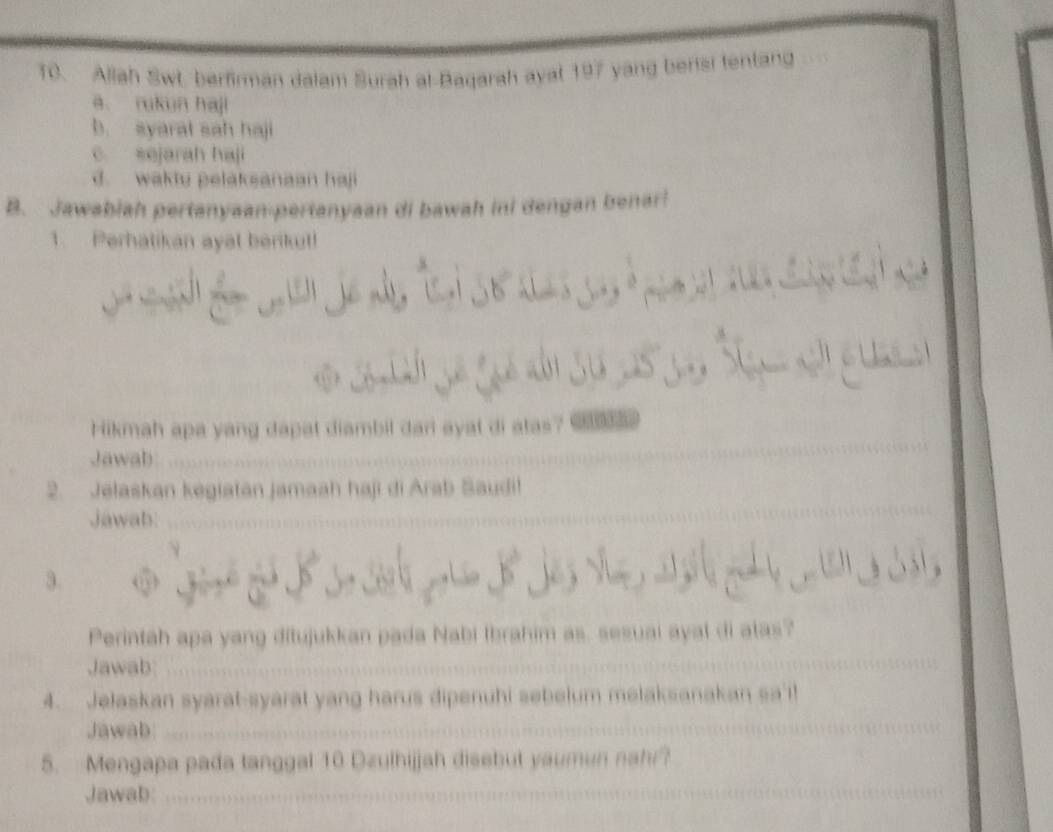 10. Allah Swt. berfirman dalam Surah al-Baqarah ayat 197 yang berisi tentang ....
a. rukun haji
b. syarat sah haji
c. sejarah haji
d. waktu pelaksanaan haji
B. Jawablah pertanyaan-pertanyaan di bawah ini dengan benar!
1. Perhatikan ayat berikut!
فِيْهِ اٰيٰتٌۢ بَيِّنٰتٌ مَّقَامُ اِبْرٰهِيْمَ ەۚ وَمَنْ دَخَلَهٗ كَانَ اٰمِنًاۗ وَلِلّٰهِ عَلَى النَّاسِ حِجُّ الْبَيْتِ مَنِ
اسْتَطَاعَ اِلَيْهِ سَبِيْلًاۗ وَمَنْ كَفَرَ فَاِنَّ اللّٰهَ غَنِيٌّ عَنِ الْعٰلَمِيْنَ
Hikmah apa yang dapat diambil dari ayat di atas?
Jawab:
2. Jelaskan kegiatan jamaah haji di Arab Saudi!
Jawab:
3. وَاَذِّنْ فِى النَّاسِ بِالْحَجِّ يَأْتُوْكَ رِجَالًا وَّعَلٰى كُلِّ ضَامِرٍ يَّأْتِيْنَ مِنْ كُلِّ فَجٍّ عَمِيْقٍۙ
Perintah apa yang ditujukkan pada Nabi Ibrahim as. sesuai ayat di atas?
Jawab:
4. Jelaskan syarat-syarat yang harus dipenuhi sebelum melaksanakan sa'i!
Jawab:
5. Mengapa pada tanggal 10 Dzulhijjah disebut yaumun nahr?
Jawab: